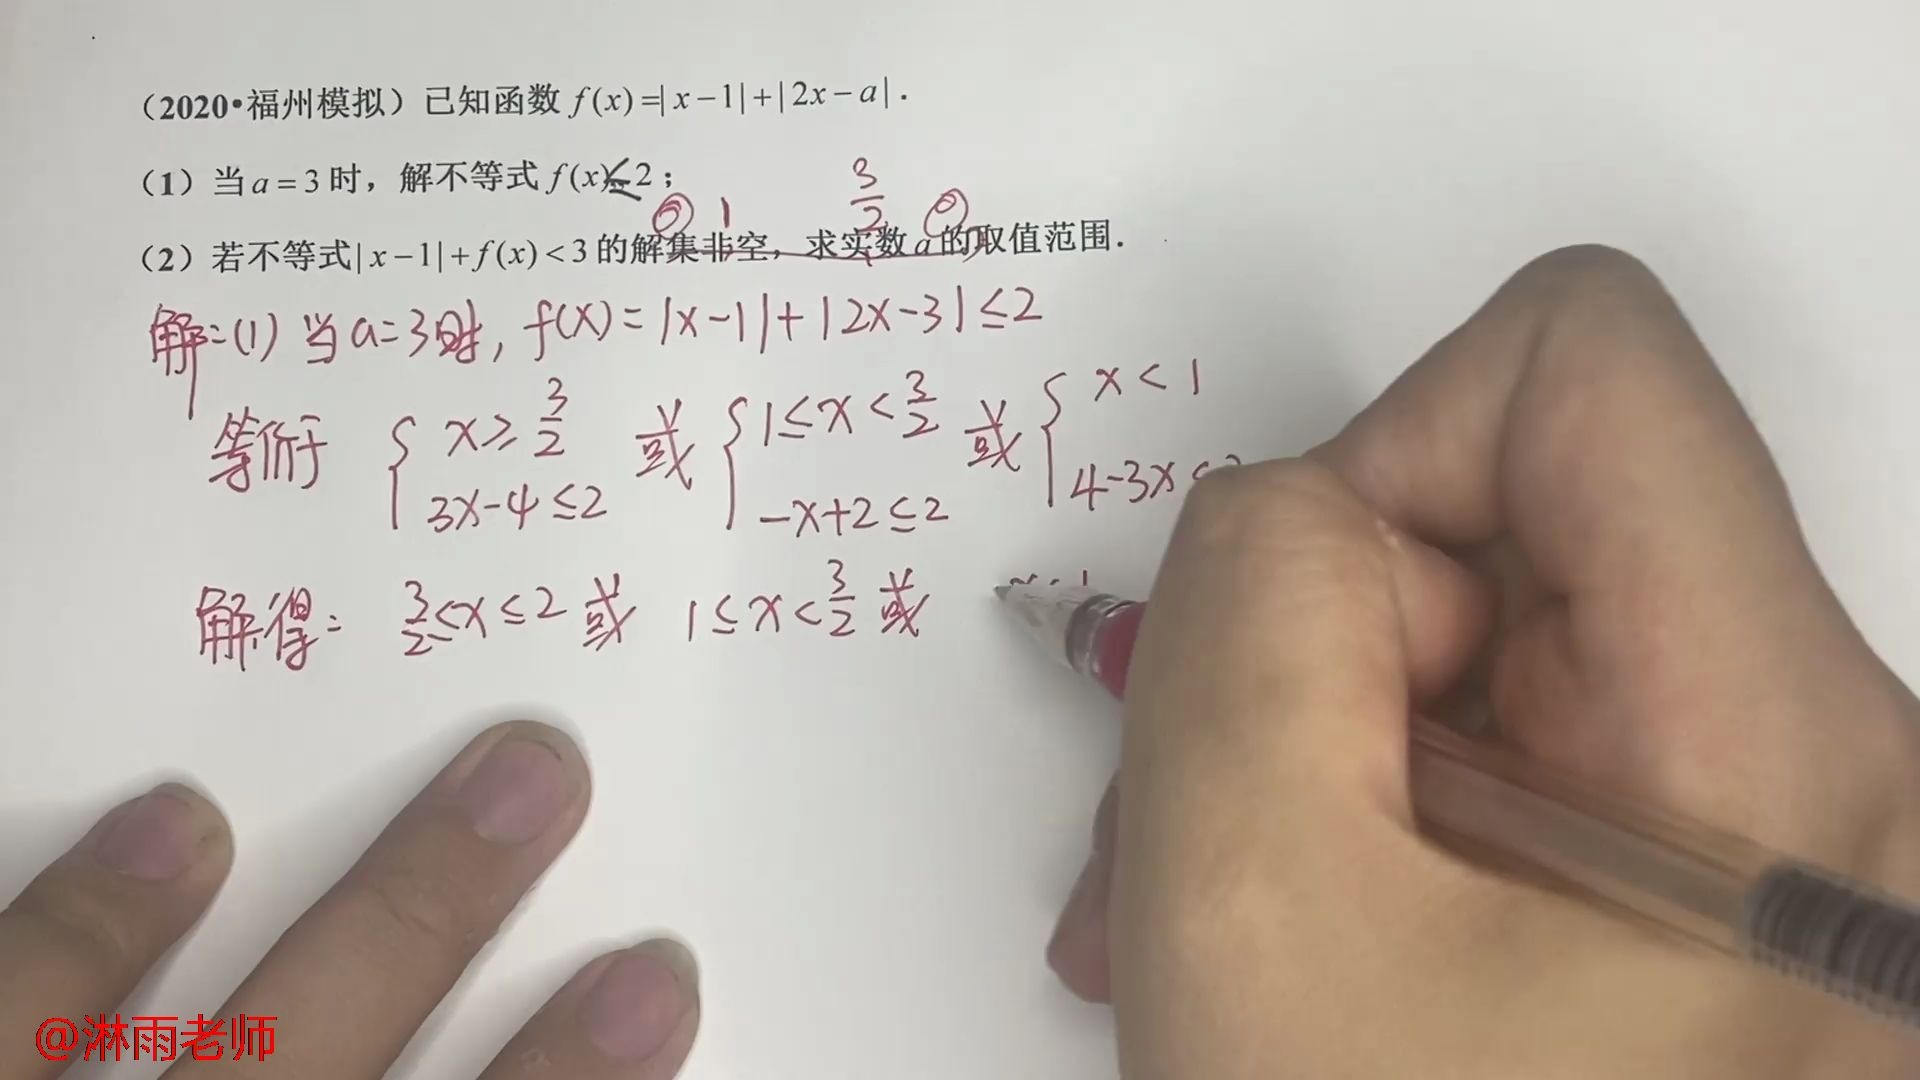 （2020•福州模拟）已知函数 f(x)=|x-1|+|2x-a|．
（1）当 a=3 时，解不等式 f(x)≤2；
① 1 3/2
（2）若不等式|x-1|+f(x)<3 的解集非空，求实数 a 的取值范围．
解：(1) 当a=3时，f(x)=|x-1|+|2x-3|≤2
等价于 { x≥3/2 3x-4≤2 或 { 1≤x<3/2 -x+2≤2 或 { x<1 4-3x≤
解得： 3/2≤x≤2 或 1≤x<3/2 或
@淋雨老师